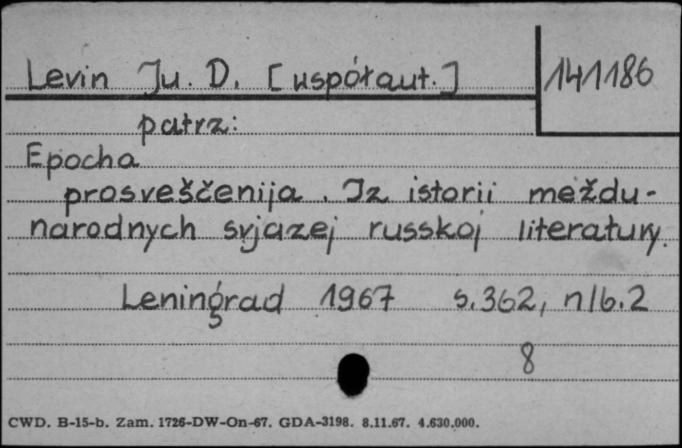 Levin Ju. D. [współaut.] 141186
patrz:
Epocha
prosveščenija. Iz istorii meždu-
narodnych svjazej russkoj literatury.
Leningrad 1967 s. 362, nlb. 2
8
CWD. B-15-b. Zam. 1726-DW-On-67. GDA-3198. 8.11.67. 4.630.000.